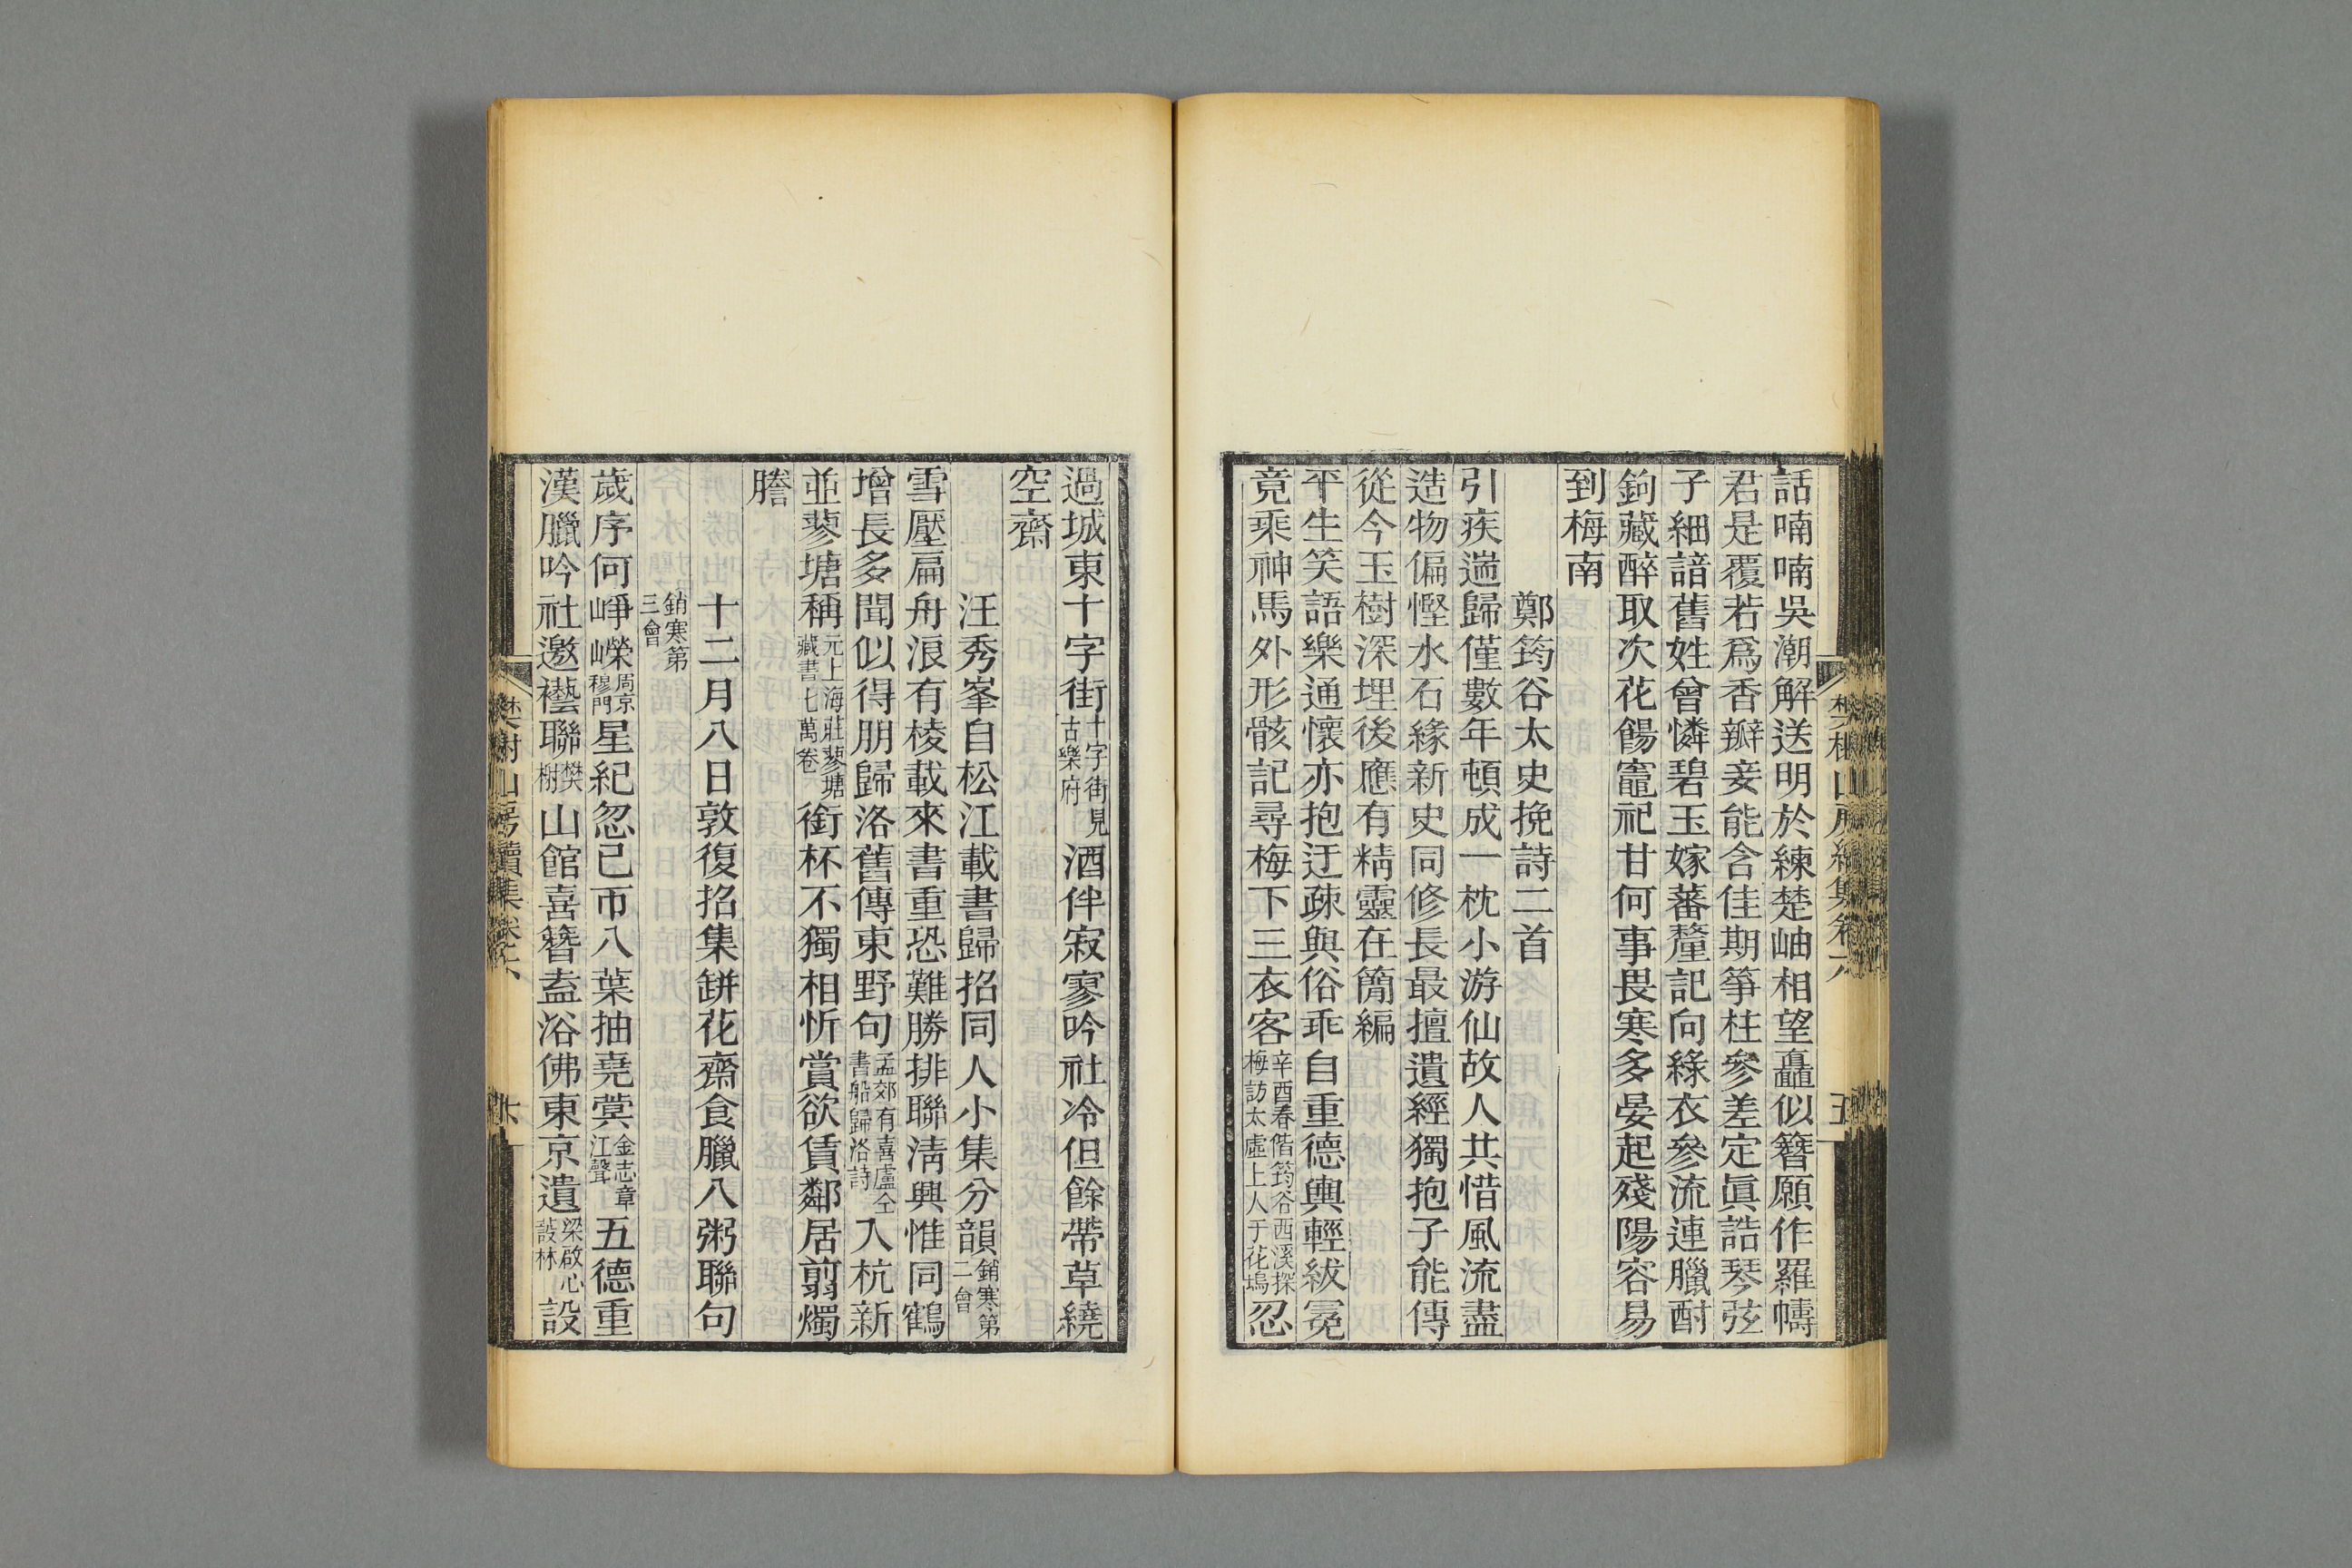 話喃喃吳潮解送明於練楚岫相望矗似簪願作羅幬
君是覆若爲香瓣妾能含佳期箏柱參差定眞誥琴弦
子細諳舊姓曾憐碧玉嫁蕃釐記向綠衣參流連臘酎
鉤藏醉取次花餳竈祀甘何事畏寒多晏起殘陽容易
到梅南
鄭筠谷太史挽詩二首
引疾遄歸僅數年頓成一枕小游仙故人共惜風流盡
造物偏慳水石緣新史同修長最擅遺經獨抱子能傳
從今玉樹深埋後應有精靈在簡編
平生笑語樂通懷亦抱迂疎與俗乖自重德輿輕紱冕
竟乘神馬外形骸記尋梅下三衣客辛酉春偕筠谷西溪探梅訪太虛上人于花塢忍
過城東十字街十字街見古樂府酒伴寂寥吟社冷但餘帶草繞
空齋
汪秀峯自松江載書歸招同人小集分韻銷寒第二會
雪壓扁舟浪有棱載來書重恐難勝排聯淸興惟同鶴
增長多聞似得朋歸洛舊傳東野句孟郊有喜盧仝書船歸洛詩入杭新
並蓼塘稱元上海莊蓼塘藏書七萬卷銜杯不獨相忻賞欲賃鄰居翦燭
謄
十二月八日敦復招集缾花齋食臘八粥聯句
銷寒第三會
歲序何崢嶸周京穆門星紀忽已帀八葉抽堯蓂金志章江聲五德重
漢臘吟社邀襼聯樊榭山館喜簪盍浴佛東京遺梁啟心䓲林設
樊榭山房續集卷六